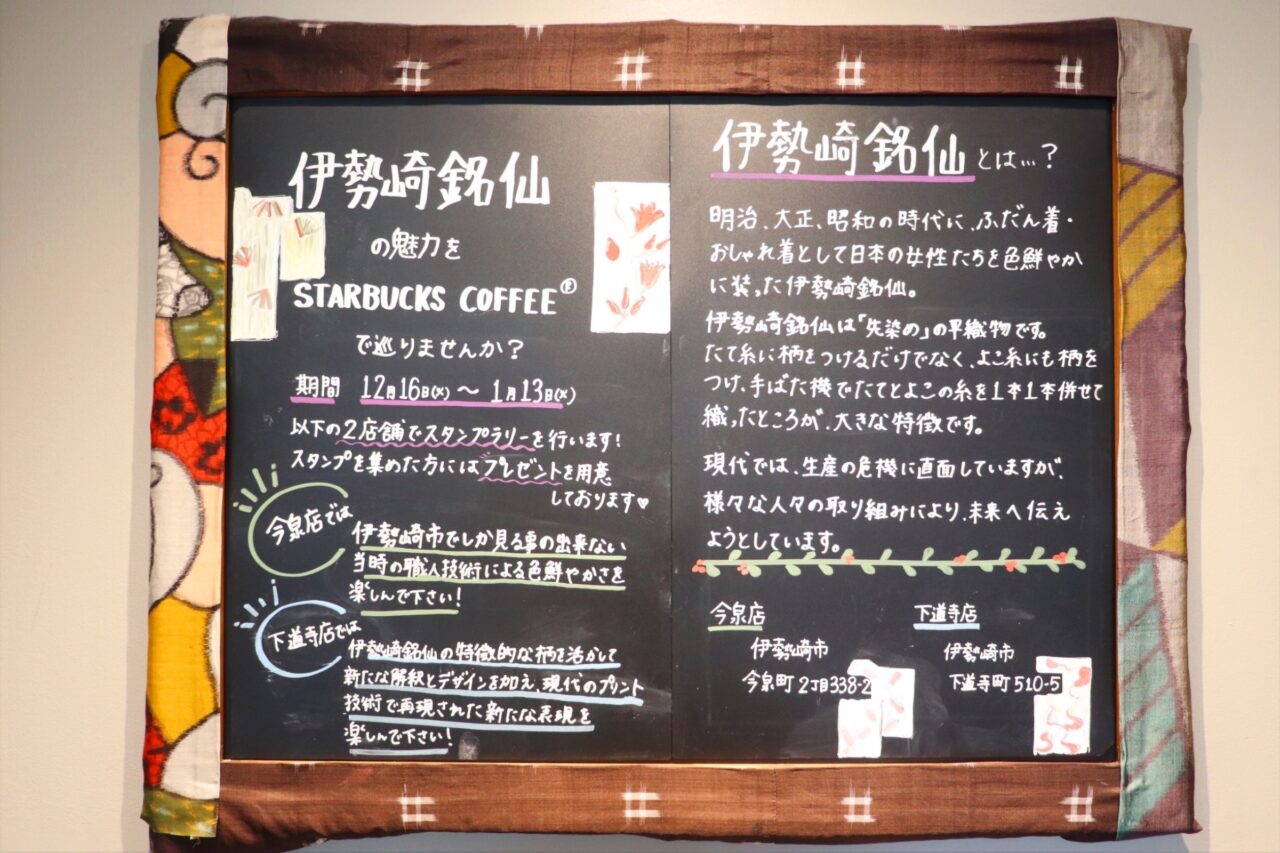 伊勢崎銘仙
の魅力を
STARBUCKS COFFEE®
で巡りませんか？
期間 12月16日(火)～1月13日(火)
以下の2店舗でスタンプラリーを行います！
スタンプを集めた方にはプレゼントを用意
しております♥
今泉店では
伊勢崎市でしか見る事の出来ない
当時の職人技術による色鮮やかさを
楽しんで下さい！
下道寺店では
伊勢崎銘仙の特徴的な柄を活かして
新たな解釈とデザインを加え、現代のプリント
技術で再現された新たな表現を
楽しんで下さい！
伊勢崎銘仙とは…？
明治、大正、昭和の時代に、ふだん着・
おしゃれ着として日本の女性たちを色鮮やか
に装った伊勢崎銘仙。
伊勢崎銘仙は「先染め」の平織物です。
たて糸に柄をつけるだけでなく、よこ糸にも柄を
つけ、手ばた機でたてとよこの糸を1本1本併せて
織ったところが、大きな特徴です。
現代では、生産の危機に直面していますが、
様々な人々の取り組みにより、未来へ伝え
ようとしています。
今泉店
伊勢崎市
今泉町2丁目338-2
下道寺店
伊勢崎市
下道寺町510-5